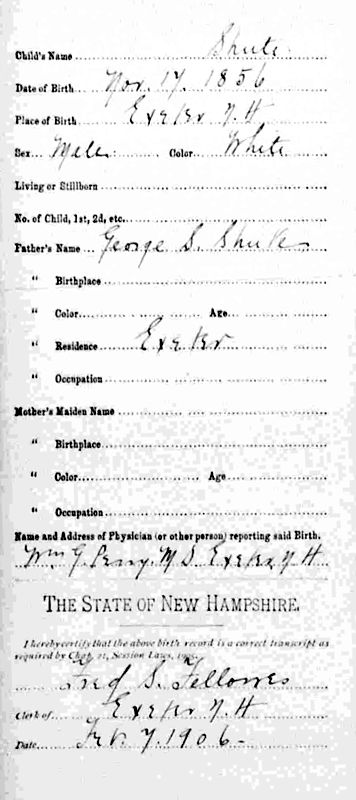 Child's Name Shute
Date of Birth Nov. 17. 1856
Place of Birth Exeter N. H
Sex Male Color White
Living or Stillborn
No. of Child, 1st, 2d, etc.
Father's Name George S. Shute
" Birthplace
" Color Age
" Residence Exeter
" Occupation
Mother's Maiden Name
" Birthplace
" Color Age
" Occupation
Name and Address of Physician (or other person) reporting said Birth.
Wm G. Perry. M D. Exeter N H
THE STATE OF NEW HAMPSHIRE.
I hereby certify that the above birth record is a correct transcript as
required by Chap. 21, Session Laws,
Fred S. Fellowes
Clerk of Exeter N. H
Date Feb. 7. 1906-